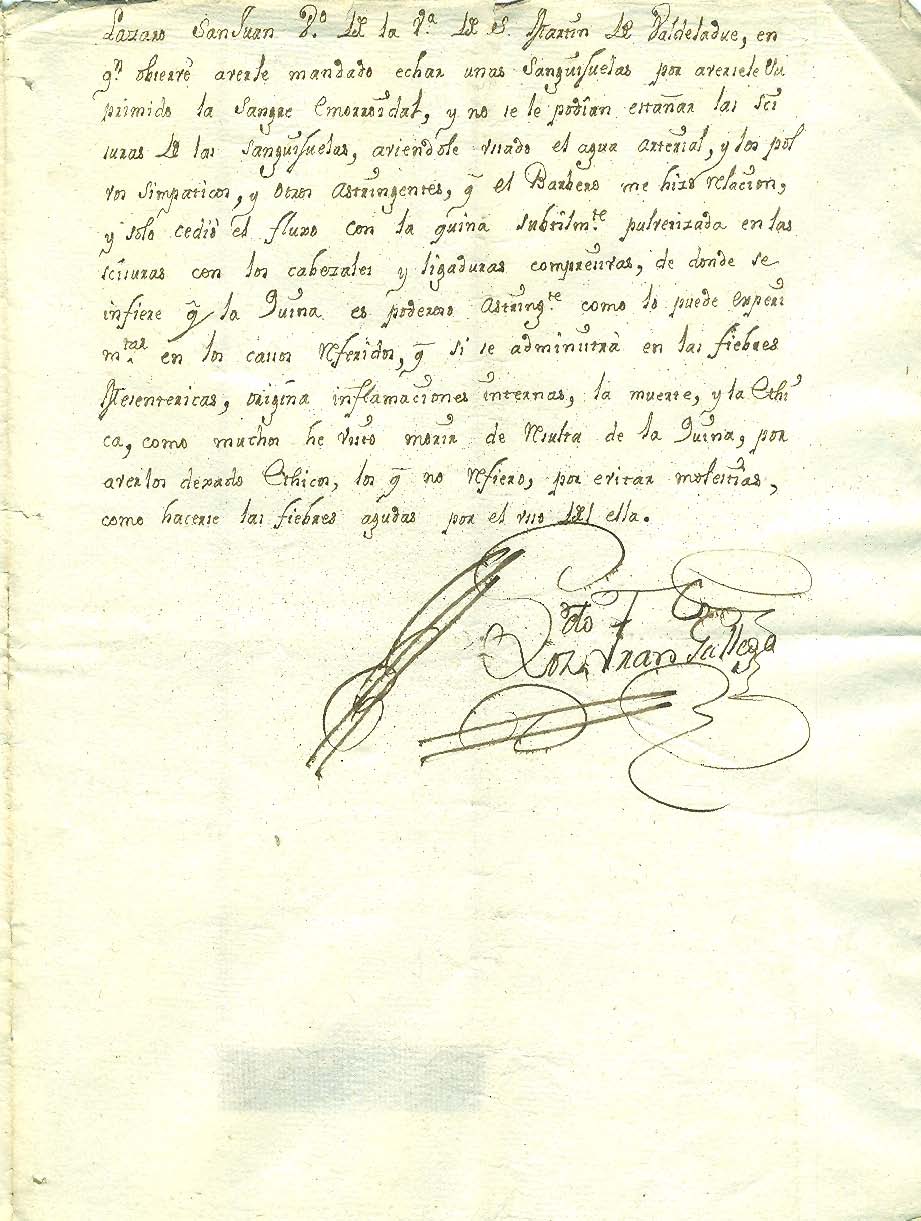 Lazaro SanJuan Vº. de la Vª. de S. Martin de Valdeladue, en
qn. obserrè averle mandado echar unas Sanguisuelas por aversele su
primido la Sangre Emorroidal, y no se le podian estañar las sci
suras de las Sanguisuelas, aviendole usado el agua arterial, y los pol
vos simpaticos, y otros Astringentes, q̃ el Barbero me hizo relacion,
y solo cediò el fluxo con la quina subtilmte. pulverizada en las
scisuras con los cabezales y ligaduras compresivas, de donde se
infiere q̃ la Quina es poderoso Astringte. como lo puede experi
mtar. en los casos referidos, q̃ si se administra en las fiebres
Mesentericas, origina inflamaciones internas, la muerte, y la Ethi
ca, como muchos he visto morir de resulta de la Quina, por
averlos dexado Ethicos, los q̃ no refiero, por evitar molestias,
como hacerse las fiebres agudas por el uso del ella.
Gallego